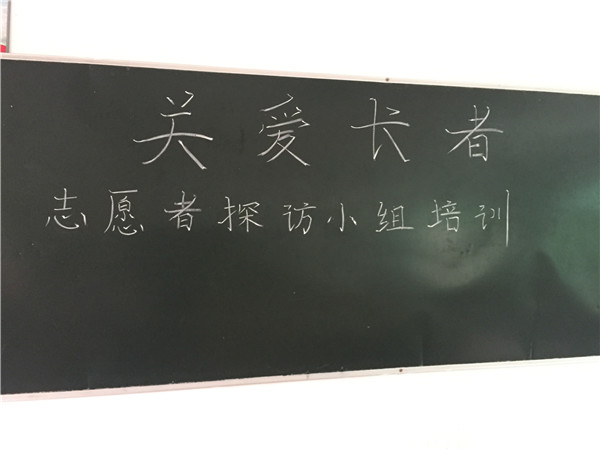 关爱长者
志愿者探访小组培训